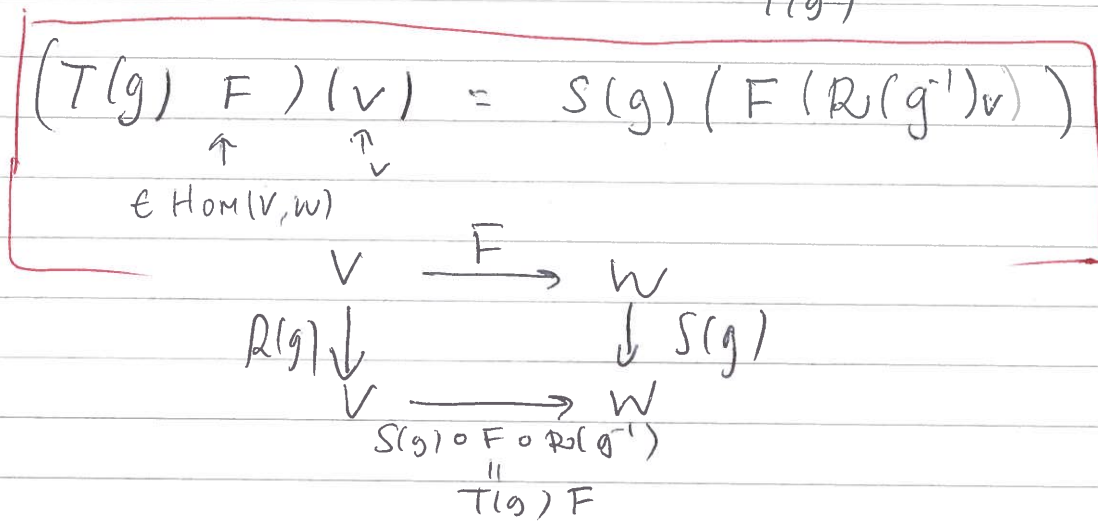 (T(g) F)(v) = S(g)(F(R(g⁻¹)v))
↑ ↑
v
∈ Hom(V,W)
V →F W
R(g)↓ ↓ S(g)
V → W
S(g)∘F∘R(g⁻¹)
=
T(g)F